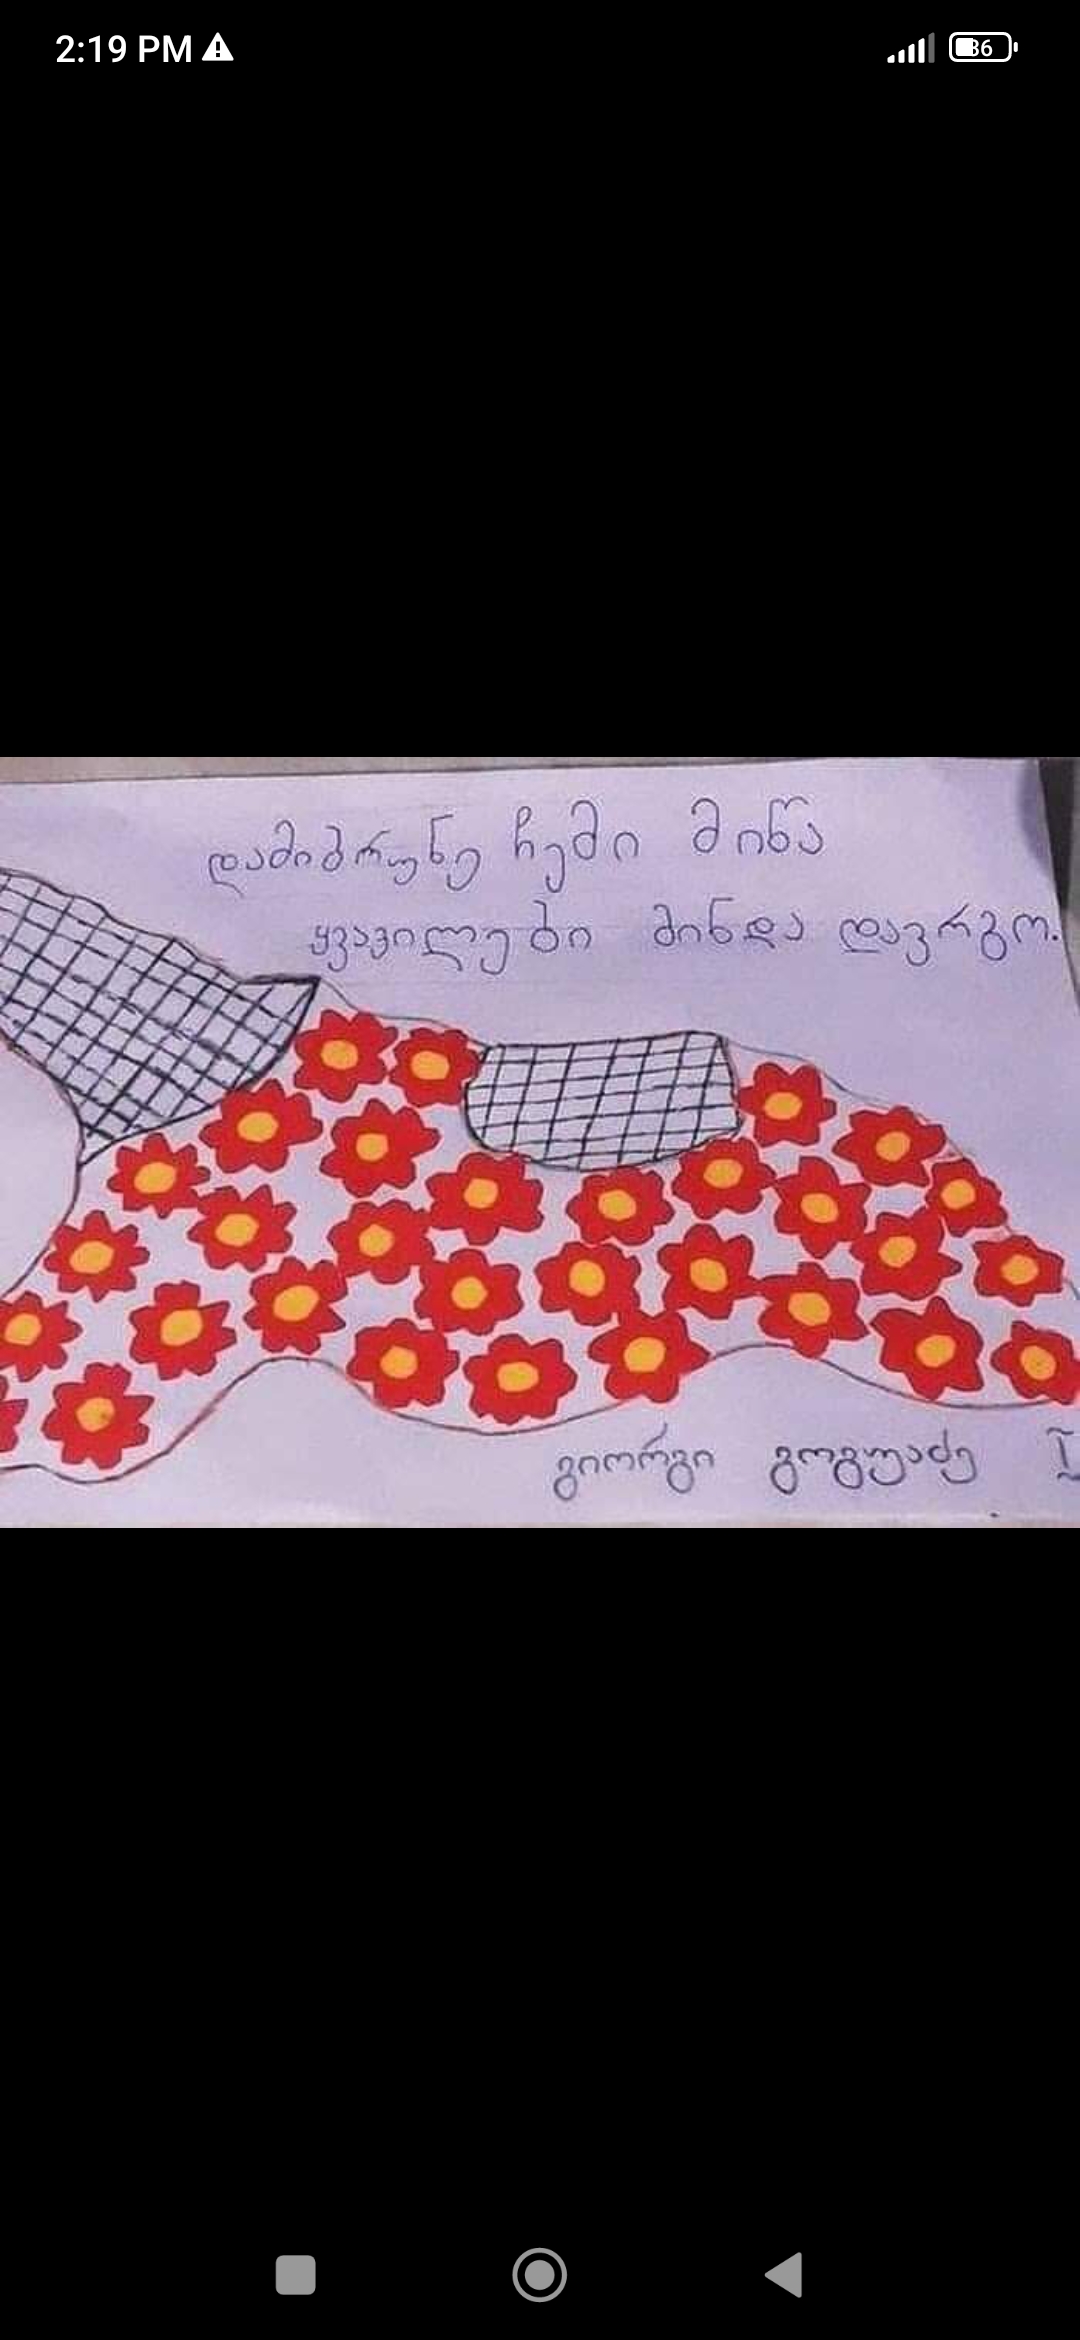 2:19 PM
86
დამიბრუნე ჩემი მიწა
ყვავილები მინდა დავრგო.
გიორგი გოგუაძე I